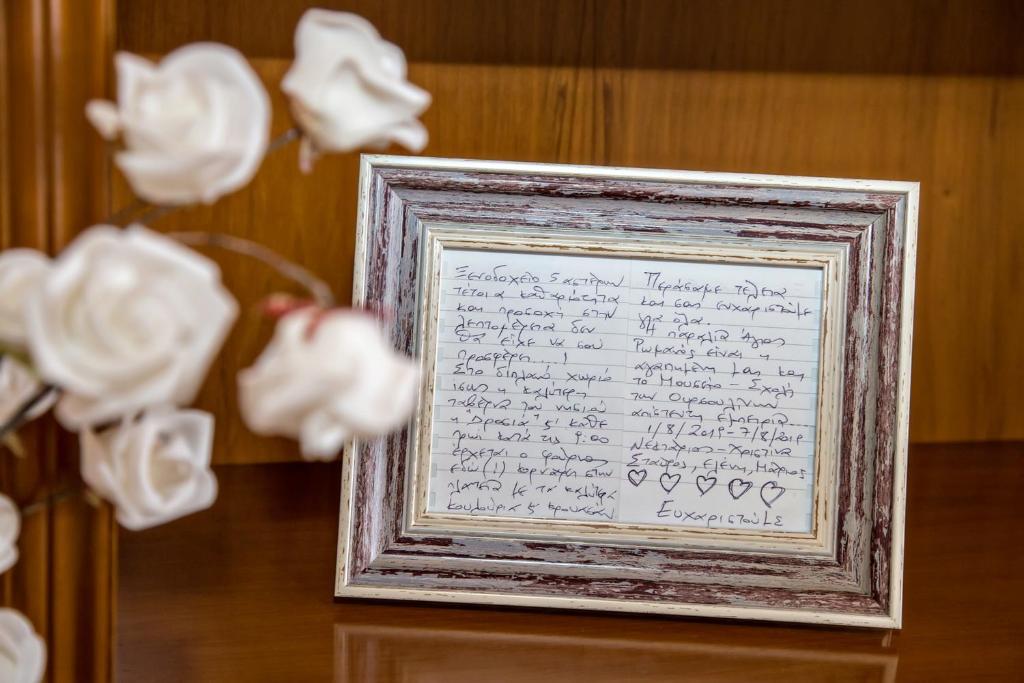 Ξενοδοχείο 5 αστέρων
τέτοια καθαριότητα
και προσοχή στην
λεπτομέρεια δεν
θα είχε να σου
προσφέρει....!
Στο διπλανό χωριό
ίσως η καλύτερη
ταβέρνα του νησιού
η "Δροσιά" & κάθε
πρωί κατά τις 9:00
έρχεται ο φούρνος
εδώ (!) κορνάρει στην
πλατεία με τα καλύτερα
κουλούρια & κρουασάν
Περάσαμε τέλεια
και σας ευχαριστούμε
για όλα.
Η παραλία Άγιος
Ρωμανός είναι η
αγαπημένη μας και
το Μουσείο - Σχολή
των Ουρσουλινών
απίστευτη εμπειρία..
1/8/2019-7/8/2019
Νεκτάριος - Χριστίνα
Σταύρος, Ελένη, Μάριος
Ευχαριστούμε